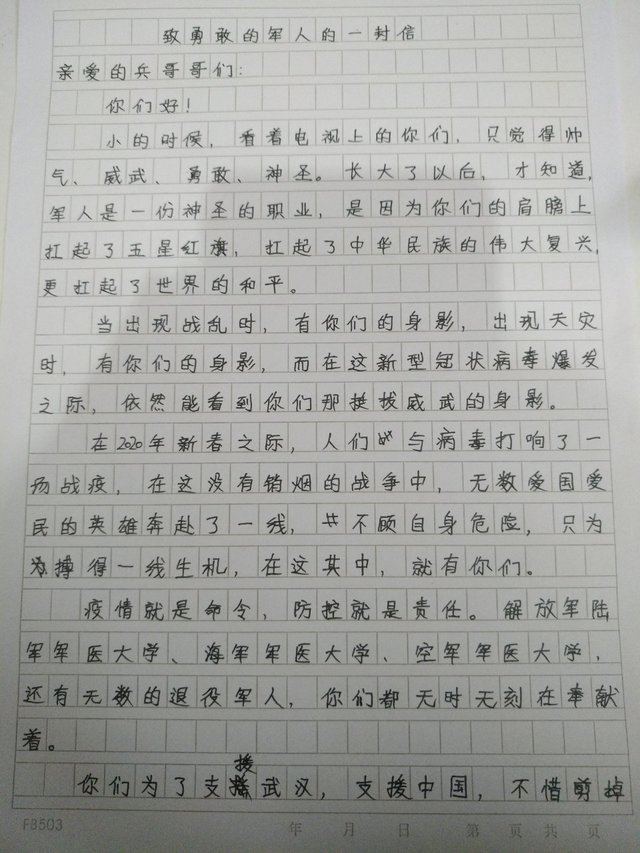 致勇敢的军人的一封信
亲爱的兵哥哥们:
你们好!
小的时候，看着电视上的你们，只觉得帅
气、威武、勇敢、神圣。长大了以后，才知道,
军人是一份神圣的职业，是因为你们的肩膀上
扛起了五星红旗，扛起了中华民族的伟大复兴,
更扛起了世界的和平。
当出现战乱时，有你们的身影，出现天灾
时，有你们的身影，而在这新型冠状病毒爆发
之际，依然能看到你们那挺拔威武的身影。
在2020年新春之际，人们与病毒打响了一
场战疫，在这没有销烟的战争中，无数爱国爱
民的英雄奔赴了一线，不顾自身危险，只为
搏得一线生机，在这其中，就有你们。
疫情就是命令，防控就是责任。解放军陆
军军医大学、海军军医大学、空军军医大学，
还有无数的退役军人，你们都无时无刻在奉献
着。
你们为了支援武汉，支援中国，不惜剪掉
F3503
年 月 日 第 页共 页